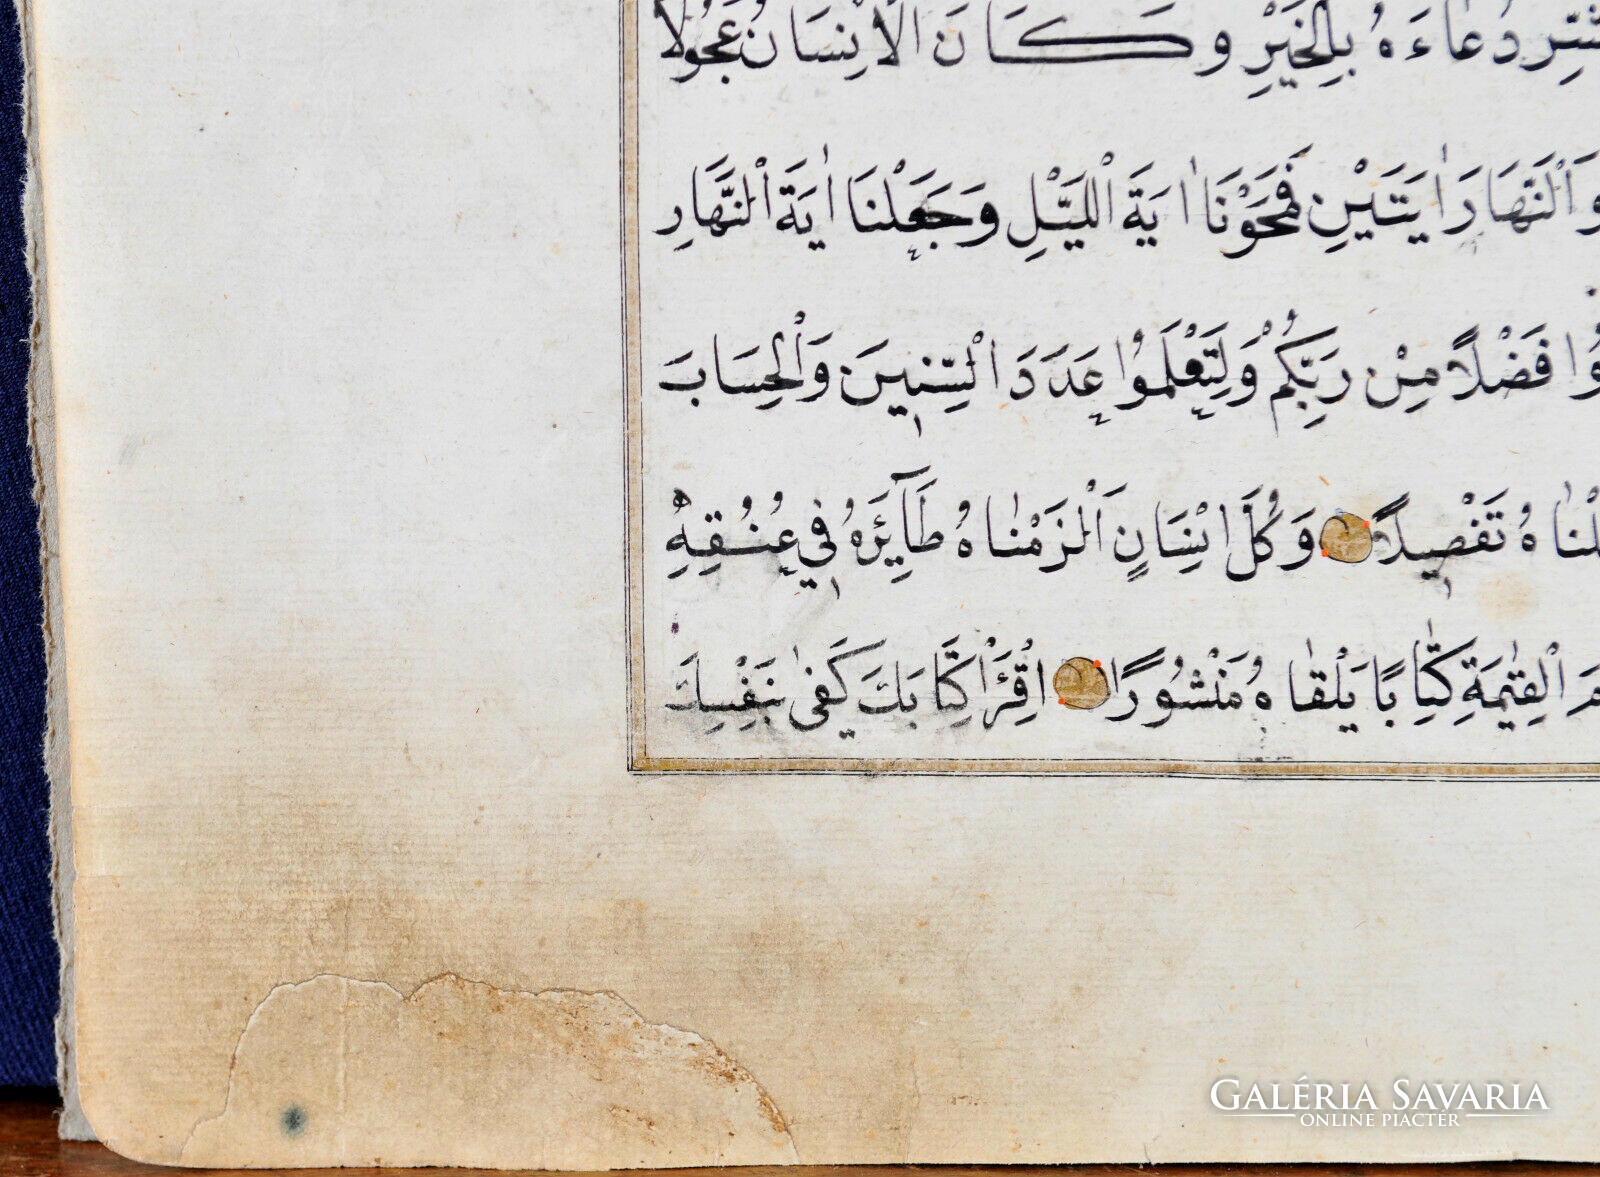 دُعَاءَهُ بِالْخَيْرِ وَكَانَ الْاِنْسَانُ عَجُولًا
وَالنَّهَارَ اٰيَتَيْنِ فَمَحَوْنَا اٰيَةَ الَّيْلِ وَجَعَلْنَا اٰيَةَ النَّهَارِ
فَضْلًا مِنْ رَبِّكُمْ وَلِتَعْلَمُوا عَدَدَ السِّنِينَ وَالْحِسَابَ
تَفْصِيلًا وَكُلَّ اِنْسَانٍ اَلْزَمْنَاهُ طَآئِرَهُ فِي عُنُقِهِ
الْقِيٰمَةِ كِتَابًا يَلْقٰاهُ مَنْشُورًا اِقْرَأْ كِتَابَكَ كَفٰى بِنَفْسِكَ
GALÉRIA SAVARIA
ONLINE PIACTÉR